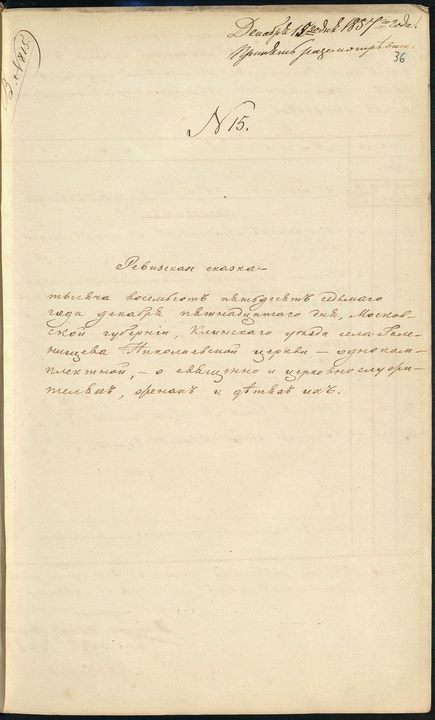 Декабря 15го дня 1857го года.
Принять
36
N 15.
Ревизская сказка
тысяча восемьсотъ пятьдесятъ седьмаго
года декабря пятнадцатаго дня, Москов-
ской губерніи, Клинскаго уѣзда села Голе-
нищева Николаевской церкви – одноком-
плектной, – о священно и церковнослужи-
теляхъ, женахъ и дѣтяхъ ихъ.